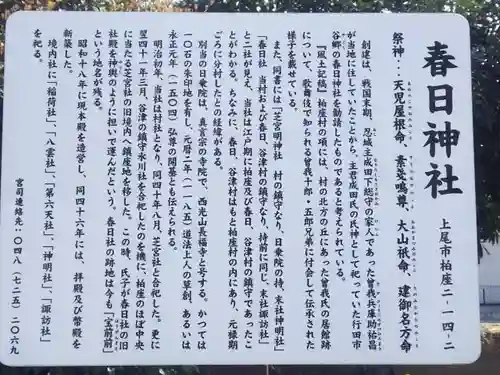 春日神社
上尾市柏座二‐一四‐二
祭神…天児屋根命、素戔嗚尊、大山祇命、建御名方命
創建は、戦国末期、忍城主成田下総守の家人であった曽我兵庫助祐昌
が当地に住していたことから、主君成田氏の氏神として祀っていた行田市
谷郷の春日神社を勧請したものであると考えられている。
『風土記稿』柏座村の項には、村の北方の丘にあった曽我氏の居館跡
について、歌舞伎で知られる曽我十郎・五郎兄弟に付会して伝承された
様子を載せている。
また、同書には「芝宮明神社 村の鎮守なり、日乗院の持、末社神明社」
「春日社 当村および春日、谷津村の鎮守なり、持前に同じ、末社諏訪社」
と二社が見え、当社は江戸期に柏座及び春日、谷津村の鎮守であったこ
とがわかる。ちなみに、春日、谷津村はもと柏座村の内にあり、元禄期
ごろに分村したとの経緯がある。
別当の日乗院は、真言宗の寺院で、西光山長福寺と号する。かつては
一〇石の朱印地を有し、元暦二年（一一八五）道法上人の草創、あるいは
永正元年（一五〇四）弘尊の開基とも伝えられる。
明治初年、当社は村社となり、同四十年八月、芝宮社と合祀した。更に
翌四十一年三月、谷津の鎮守氷川社を合祀したのを機に、柏座のほぼ中央
に当たる芝宮社の旧境内に鎮座地を移した。この時、氏子が春日社の旧
社殿を神輿のように担いで運んだという。春日社の跡地は今も「宝前前」
という地名が残る。
昭和十八年に現本殿を造営し、同四十六年には、拝殿及び幣殿を
新築した。
境内社に「稲荷社」、「八雲社」、「第六天社」、「神明社」、「諏訪社」
を祀る。
宮司連絡先：〇四八（七二五）二〇六九